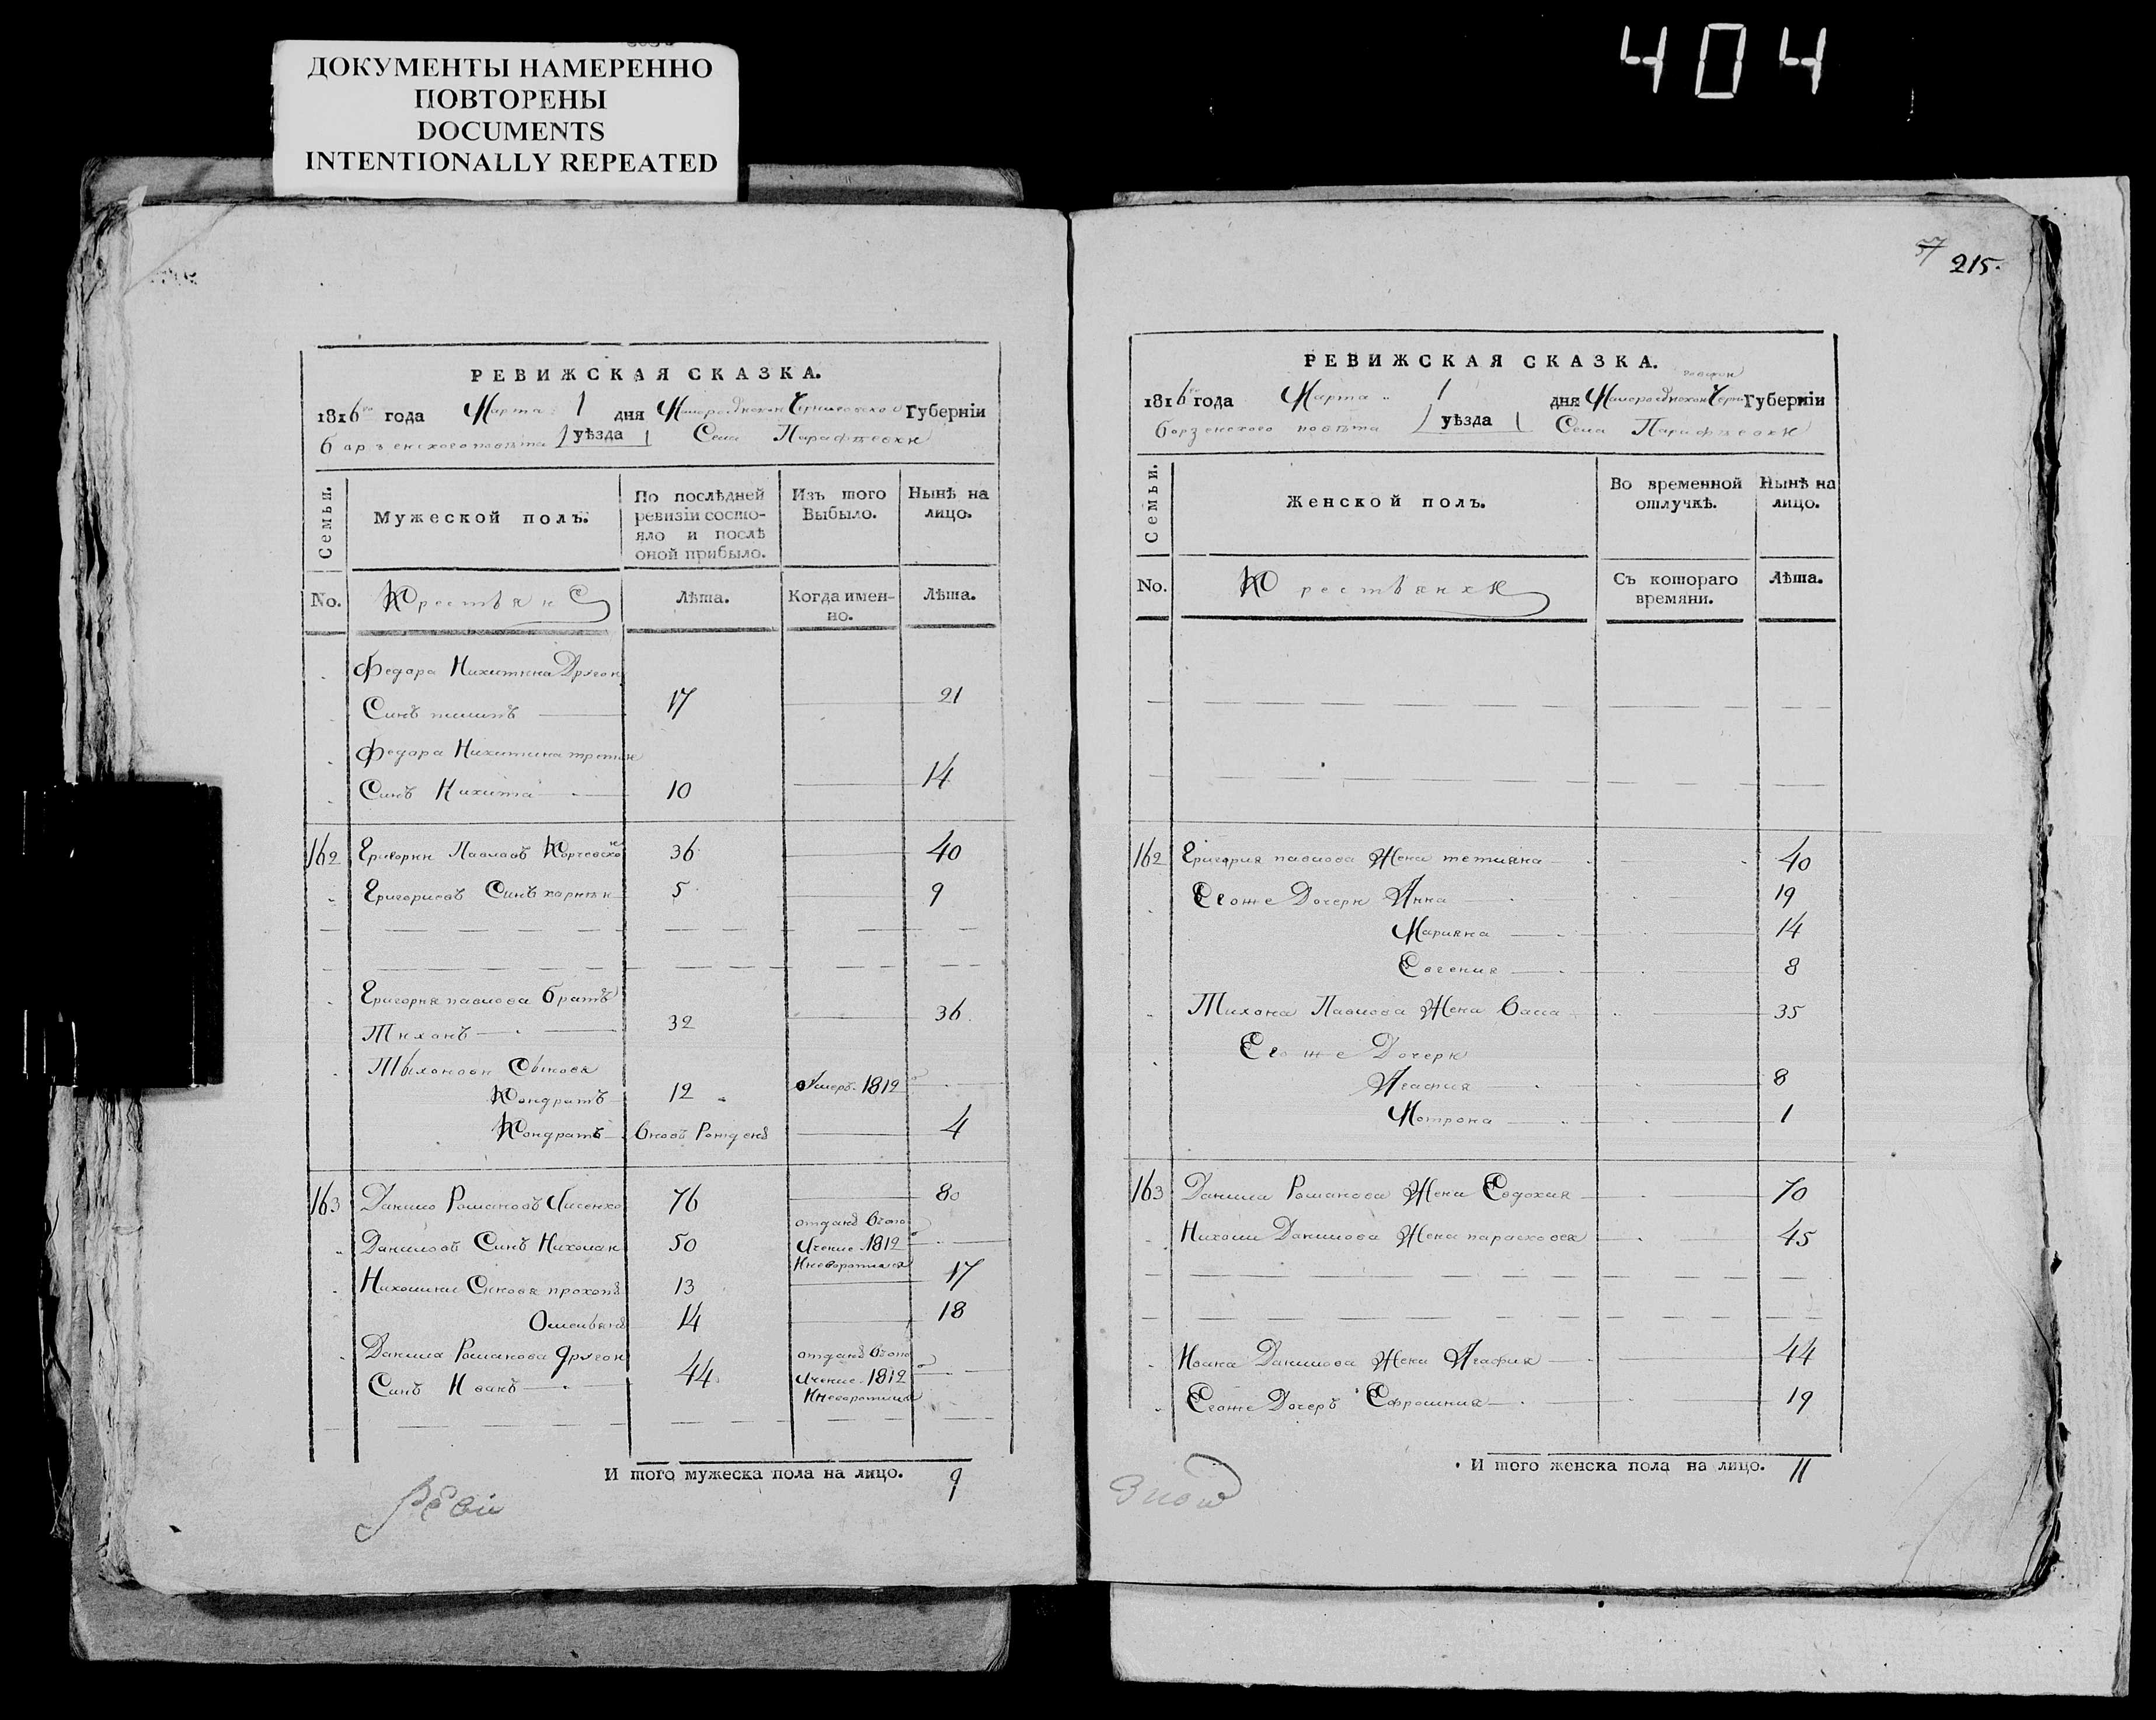 404
ДОКУМЕНТЫ НАМЕРЕННО
ПОВТОРЕНЫ
DOCUMENTS
INTENTIONALLY REPEATED
РЕВИЖСКАЯ СКАЗКА.
1816го года Марта 1 дня Малороссiйской Черниговской Губернiи
борзенского повѣта уѣзда Села Парафѣевки
Семьи.
Мужеской полъ.
По послѣдней
ревизiи состо-
яло и послѣ
оной прибыло.
Изъ того
Выбыло.
Нынѣ на
лицо.
No.
Крестьяне
Лѣта.
Когда имен-
но.
Лѣта.
Федора Никитина Другой
Синъ 17 21
Федора Никитина третий
Синъ Никита 10 14
162 Григорий Павловъ Корчевский 36 40
Григориевъ Синъ 5 9
Григория павлова братъ
Тихонъ 32 36
Тихоновы Сынова
Кондратъ 12 Умеръ 1812
Кондратъ вновъ Рожденъ 4
163 Данило Романовъ Лисенко 76 80
отданъ въ опо
Даниловъ Синъ Николай 50 лчение 1812
Николаи Синова прокопъ 13 17
Омельянъ 14 18
Данила Романова другой
отданъ въ опо
Синъ Иванъ 44 лчение 1812
И того мужеска пола на лицо. 9
Реви
57
215.
РЕВИЖСКАЯ СКАЗКА.
1816го года Марта 1 дня Малороссiйской Черни Губернiи
борзенского повѣта уѣзда Села Парафѣевки
Семьи.
Женской полъ.
Во временной
отлучкѣ.
Нынѣ на
лицо.
No.
Крестьянки
Съ котораго
времяни.
Лѣта.
162 Григория павлова Жена тетияна 40
Егоже Дочери Анна 19
Марияна 14
Евгения 8
Тихона Павлова Жена Васса 35
Егоже Дочери
Агафия 8
Мотрона 1
163 Данила Романова Жена Евдокия 70
Николи Данилова Жена парасковея 45
Ивана Данилова Жена Агафия 44
Егоже Дочеръ Ефросиния 19
И того женска пола на лицо. 11